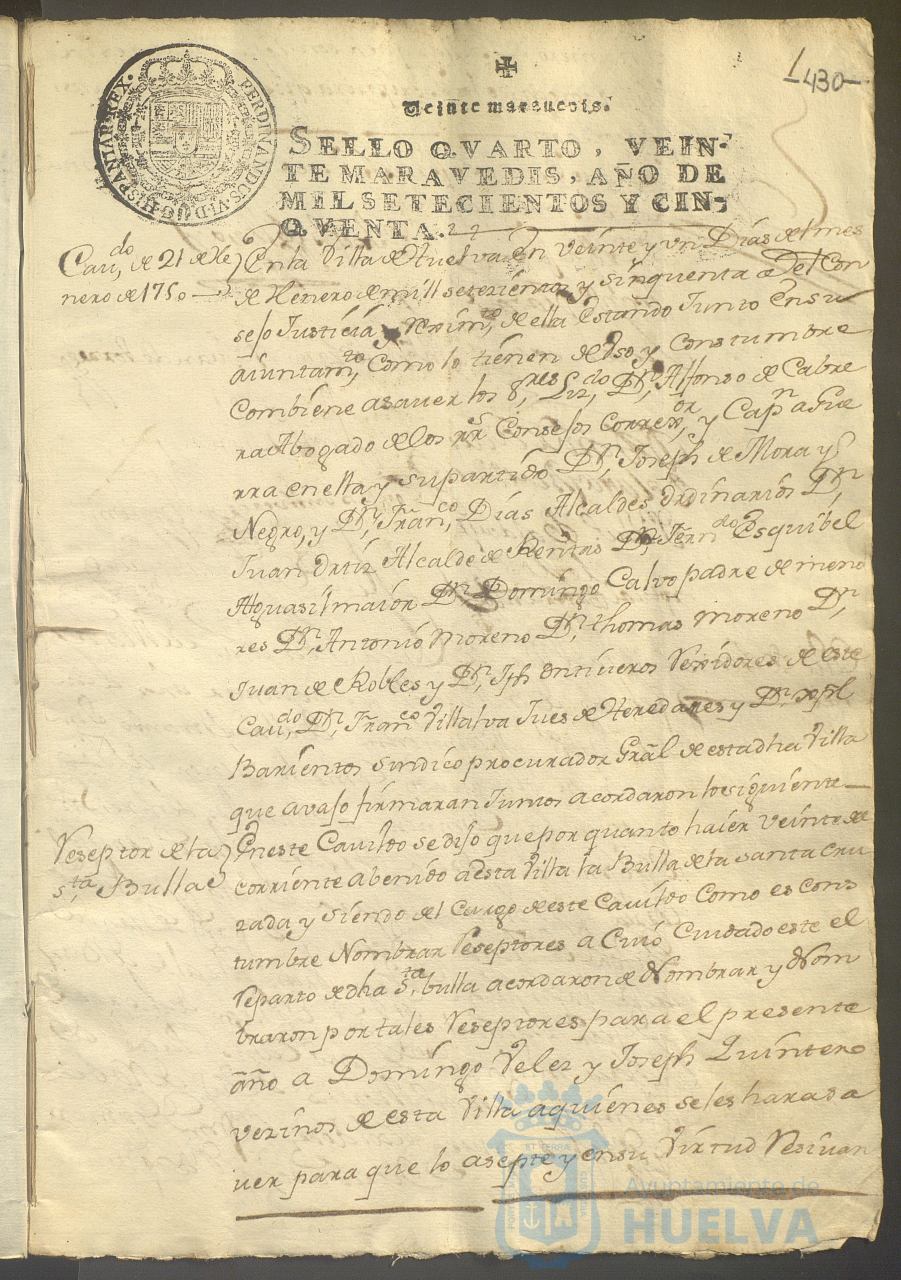 430
Veinte maravedis.
SELLO QVARTO, VEIN-
TE MARAVEDIS, AÑO DE
MIL SETECIENTOS Y CIN-
QVENTA.
FERDINANDUS.VI.D.G.HISPANIAR.REX.
Cavdo, de 21 de He
nero de 1750
En la Villa de Huelva en veinte y un Dias del mes
de Henero de mill setezientos y sinquenta a Del Con
sejo Justicia y Reximto, de ella Estando Junto en su
aiuntamto, Como lo tienen de Uso y Constumbre
Combiene asauer los Sres, Lizdo, Dn, Alfonso de Cabre
ra Abogado de los Rs Consejos Correxor, y Capn a Gue
rra en ella y su partido Dn, Joseph de Mora y
Negro, y Dn, Franco, Dias Alcaldes Ordinarios Dn,
Juan Ortiz Alcalde de Rentas Dn, Ferndo Esquibel
Alguasil maior Dn, Domingo Calvo padre de meno
res Dn, Antonio Moreno Dn, Thomas Moreno Dn,
Juan de Robles y Dn, Jph Ontiveros Rexidores de este
Cavdo, Dn, Franco Villalva Jues de Heredades y Dn,
Barientos sindico procurador Gral de esta dha Villa
que avajo firmaran Juntos acordaron lo siguiente
Reseptor de la
sta, Bulla
En este Cavildo se dijo que por quanto haier veinte de
corriente a benido a esta Villa la Bulla de la santa Cru
zada y siendo del Cargo de este Cavildo Como es Cons
tumbre Nombrar Reseptores a Cuio Cuidado este el
reparto de dha Sta, bulla acordaron de Nombrar y Nom
braron por tales Reseptores para el presente
año a Domingo Velez y Joseph Quintero
vezinos de esta Villa a quienes se les hara sa
uer para que lo asepte y en su Virtud Resivan
Ayuntamiento de
HUELVA